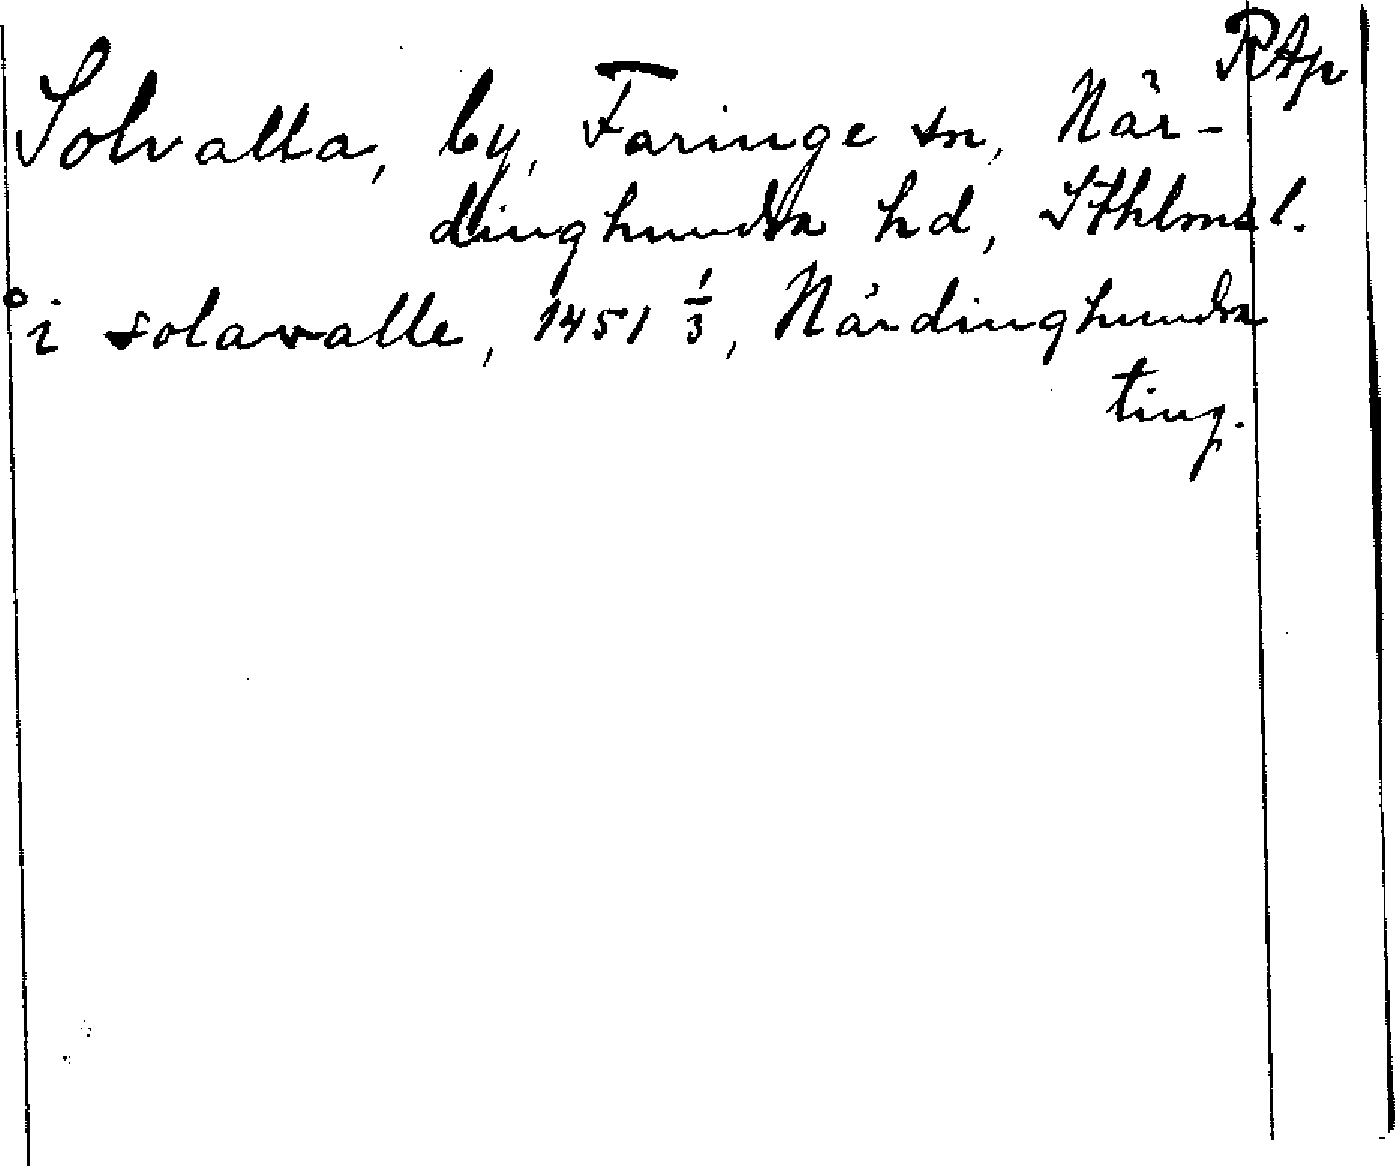 RAp
Solvalla, by, Faringe sn, När-
dinghundra hd, Sthlms l.
i solavalle, 1451 1/3, Närdinghundra
ting.